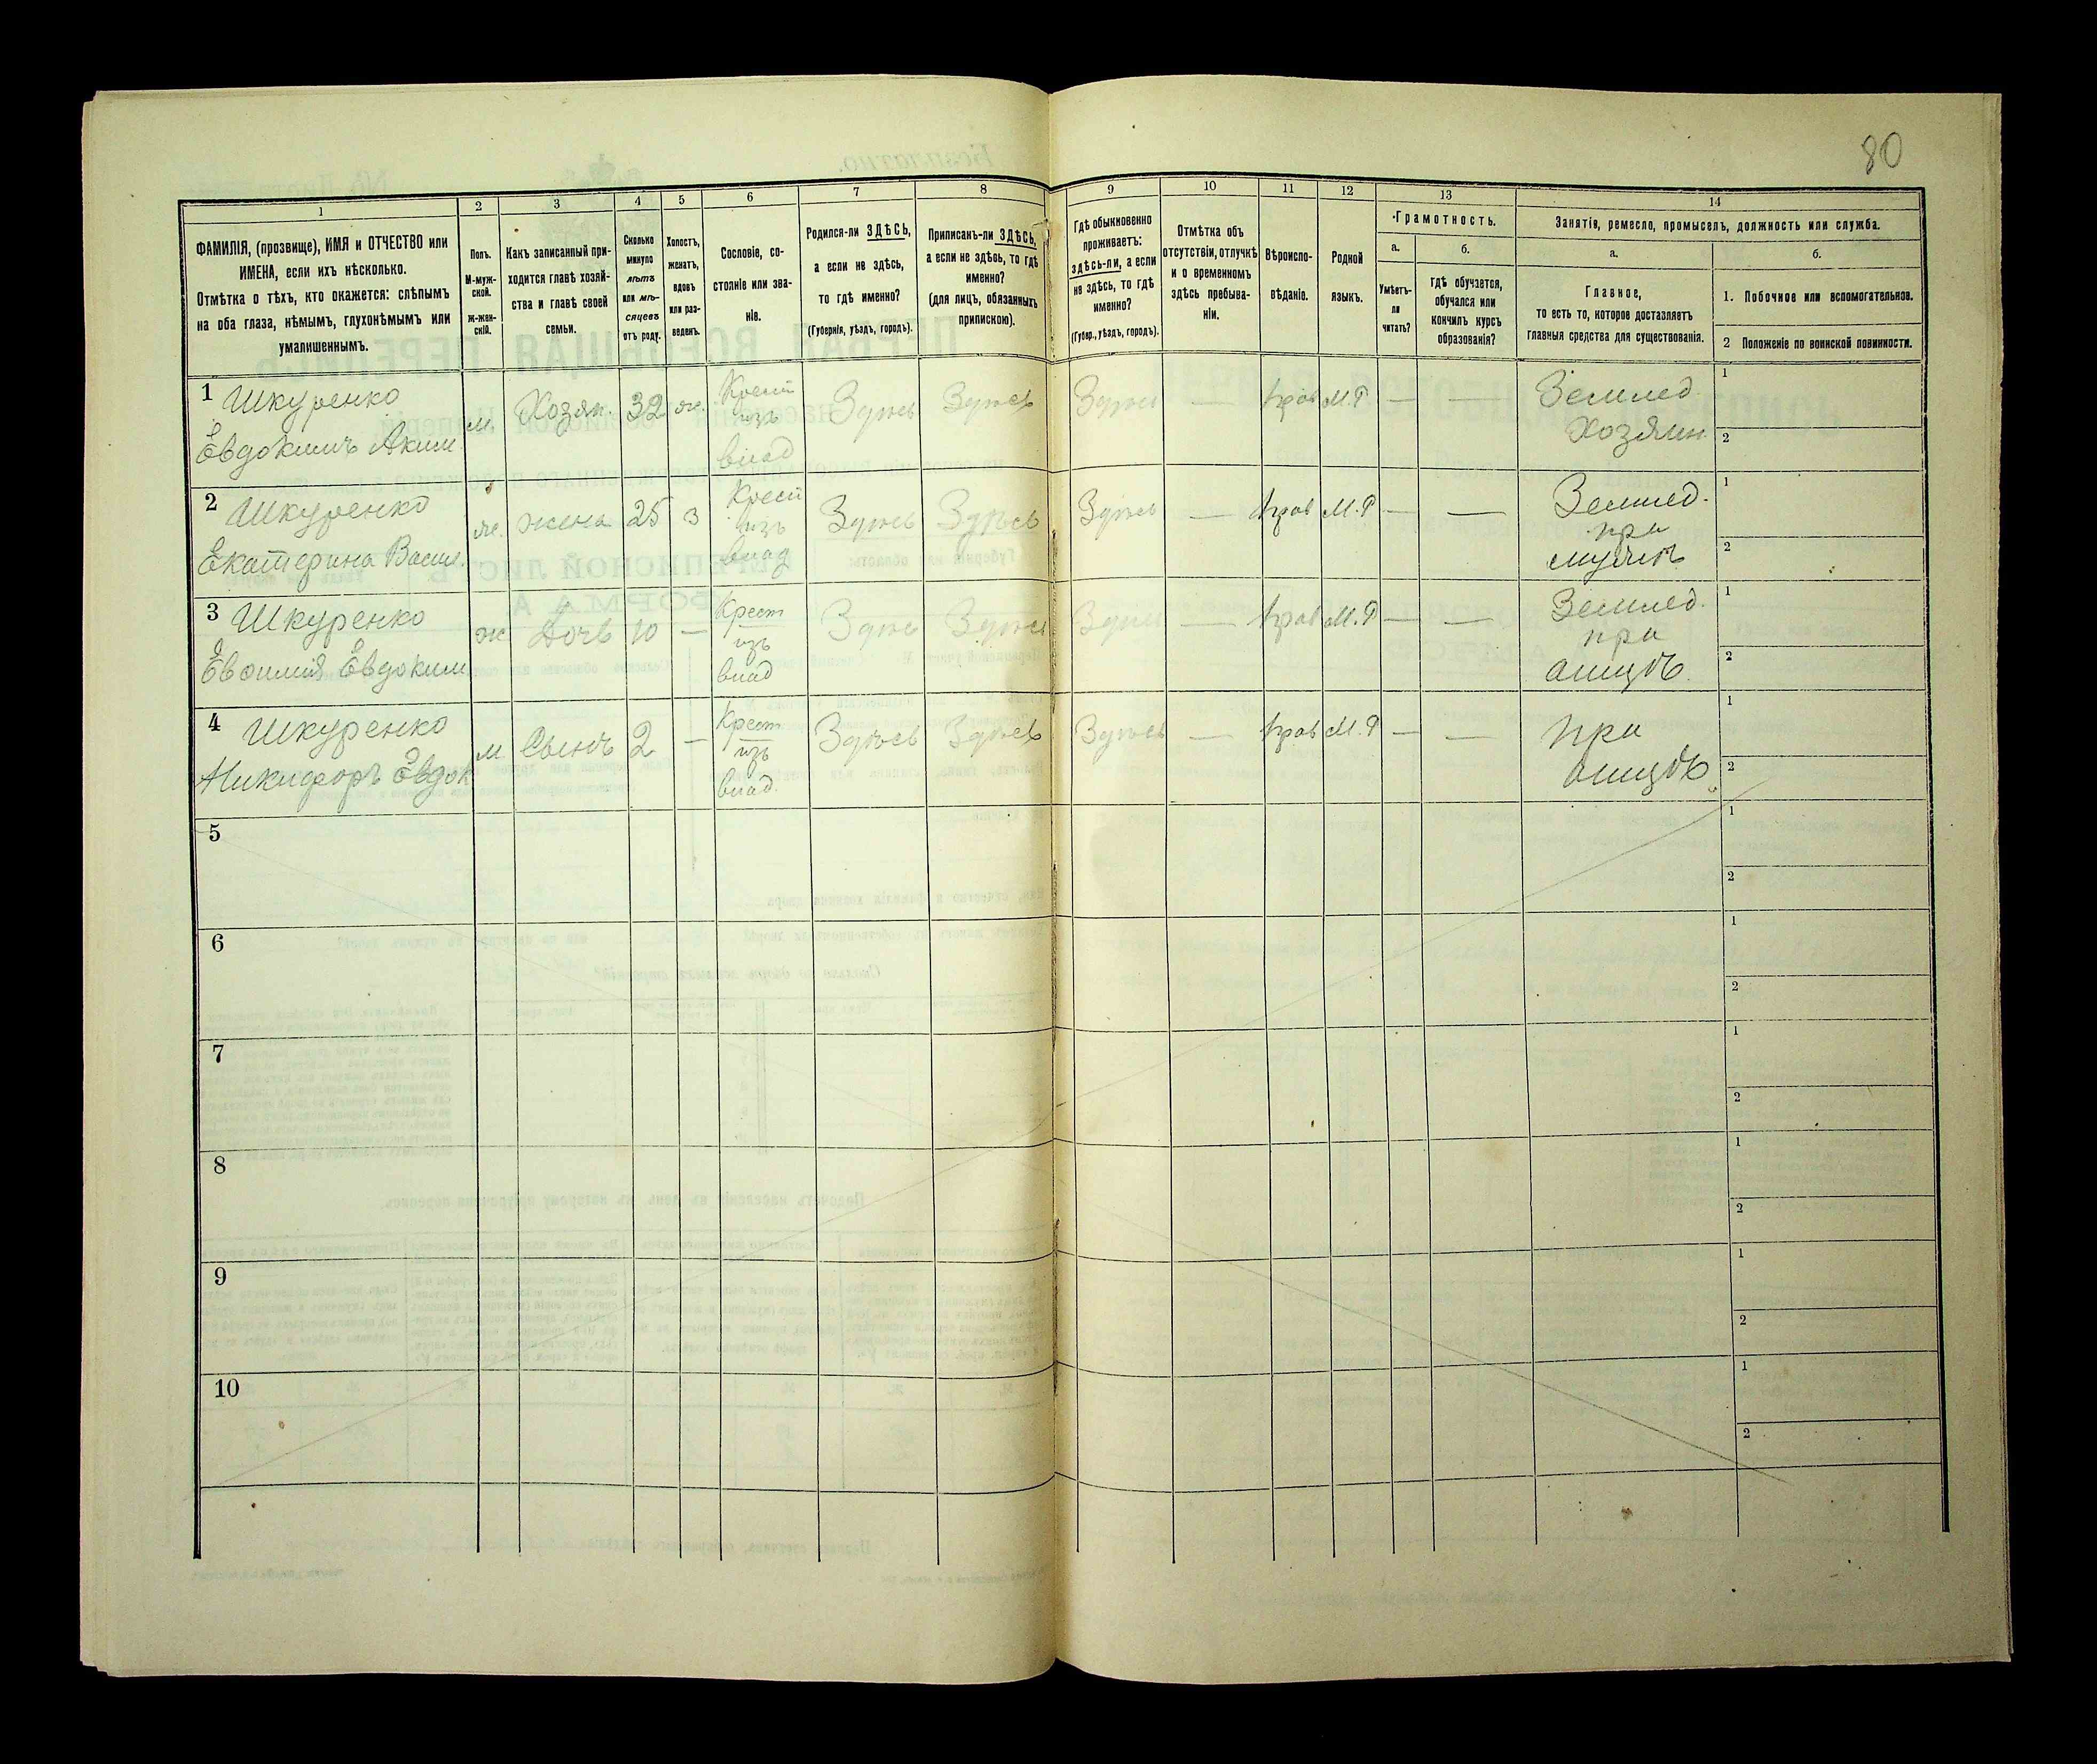 80
1 2 3 4 5 6 7 8 9 10 11 12 13 14
ФАМИЛІЯ, (прозвище), ИМЯ и ОТЧЕСТВО или
ИМЕНА, если ихъ нѣсколько.
Отмѣтка о тѣхъ, кто окажется: слѣпымъ
на оба глаза, нѣмымъ, глухонѣмымъ или
умалишеннымъ.
Полъ.
М-муж-
ской.
ж-жен-
скій.
Какъ записанный при-
ходится главѣ хозяй-
ства и главѣ своей
семьи.
Сколько
минуло
лѣтъ
или мѣ-
сяцевъ
отъ роду.
Холостъ,
женатъ,
вдовъ
или раз-
веденъ.
Сословіе, со-
стояніе или зва-
ніе.
Родился-ли ЗДѢСЬ,
а если не здѣсь,
то гдѣ именно?
(Губернія, уѣздъ, городъ).
Приписанъ-ли ЗДѢСЬ,
а если не здѣсь, то гдѣ
именно?
(для лицъ, обязанныхъ
припискою).
Гдѣ обыкновенно
проживаетъ:
здѣсь-ли, а если
не здѣсь, то гдѣ
именно?
(Губер., уѣздъ, городъ).
Отмѣтка объ
отсутствіи, отлучкѣ
и о временномъ
здѣсь пребыва-
ніи.
Вѣроиспо-
вѣданіе.
Родной
языкъ.
Грамотность.
а.
Умѣетъ-
ли
читать?
б.
Гдѣ обучается,
обучался или
кончилъ курсъ
образованія?
Занятія, ремесло, промыселъ, должность или служба.
а.
Главное,
то есть то, которое доставляетъ
главныя средства для существованія.
б.
1. Побочное или вспомогательное.
2 Положеніе по воинской повинности.
1 Шкуренко
Евдокимъ Аким.
м. Хозяи. 32 ж. Крест
изъ
влад
Здѣсь Здѣсь Здѣсь — Прав М.Р — —
Землед.
Хозяин.
1
2
2 Шкуренко
Екатерина Васил.
ж. жена 25 з Крест
изъ
влад
Здѣсь Здѣсь Здѣсь — Прав М.Р — —
Землед.
при
мужѣ
1
2
3 Шкуренко
Евфимія Евдоким
ж Дочь 10 — Крест
изъ
влад
Здѣсь Здѣсь Здѣсь — Прав М.Р — —
Землед.
при
отцѣ.
1
2
4 Шкуренко
Никифоръ Евдок
м Сынъ 2 — Крест
изъ
влад.
Здѣсь Здѣсь Здѣсь — Прав М.Р — —
при
отцѣ
1
2
5
1
2
6
1
2
7
1
2
8
1
2
9
1
2
10
1
2